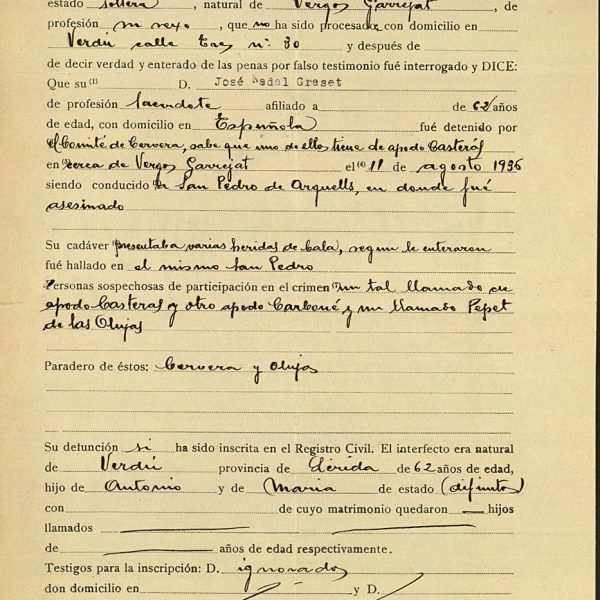 estado soltera, natural de Vergós Garrejat, de
profesión su sexo, que no ha sido procesada con domicilio en
Verdú calle nº 30 y después de
de decir verdad y enterado de las penas por falso testimonio fué interrogado y DICE:
Que su (1) D. José Nadal Graset
de profesión Sacerdote afiliado a de 62 años
de edad, con domicilio en Española fué detenido por
el Comité de Cervera, sabe que uno de ellos tiene de apodo Casterás
en cerca de Vergós Garrejat el (4) 11 de agosto 1936
siendo conducido a San Pedro de Arquells, en donde fué
asesinado
Su cadáver presentaba varias heridas de bala, segun le enteraron
fué hallado en el mismo San Pedro
Personas sospechosas de participación en el crimen un tal llamado de
apodo Casteras y otro apodo Carboné y un llamado Pepet
de las Olujas
Paradero de éstos: Cervera y Olujas
Su defunción si ha sido inscrita en el Registro Civil. El interfecto era natural
de Verdú provincia de Lérida de 62 años de edad,
hijo de Antonio y de Maria de estado (difuntos)
con de cuyo matrimonio quedaron — hijos
llamados
de años de edad respectivamente.
Testigos para la inscripción: D. ignorados
don domicilio en y D.